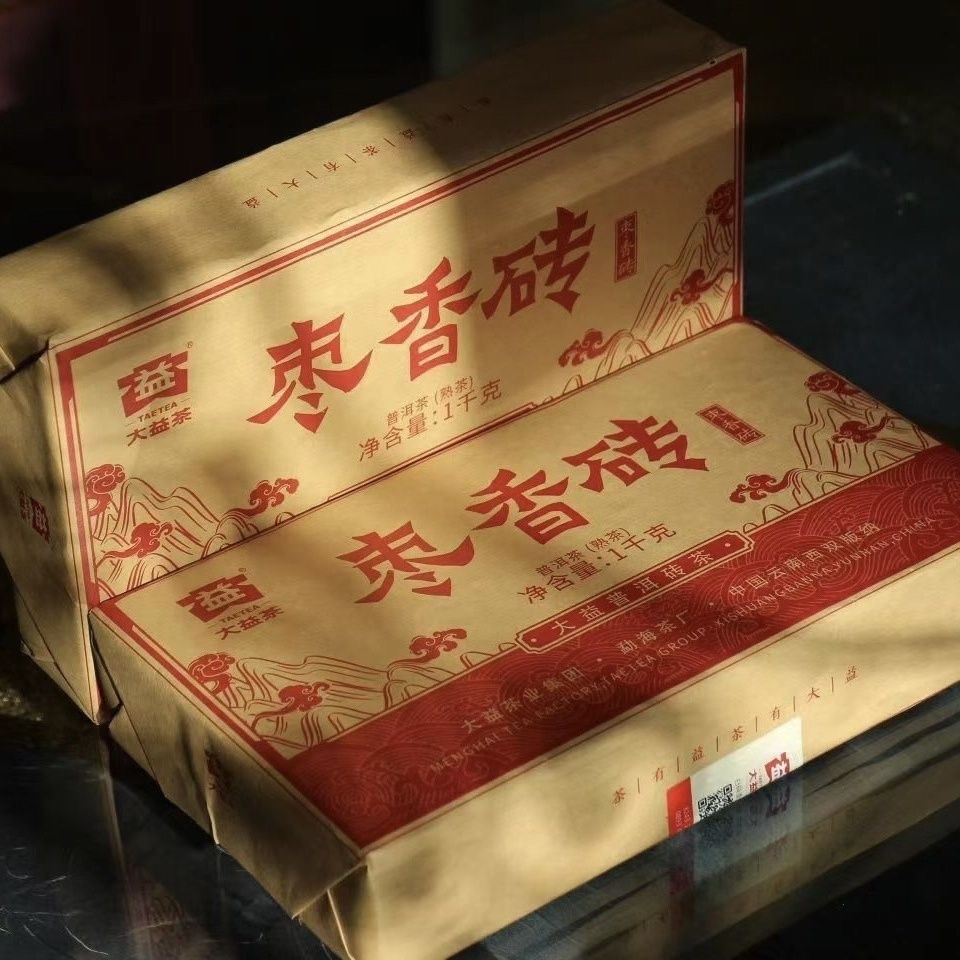 茶|有|益|茶|有|大|益
益®
TAETEA
大益茶
枣香砖
枣香砖
普洱茶(熟茶)
净含量:1千克
益®
TAETEA
大益茶
枣香砖
枣香砖
普洱茶(熟茶)
净含量:1千克
大益普洱砖茶
大益茶业集团·勐海茶厂·中国云南西双版纳
MENGHAI TEA FACTORY.TAETEA GROUP·XISHUANGBANNA,YUNNAN,CHINA
茶|有|益|茶|有|大|益
益
大益